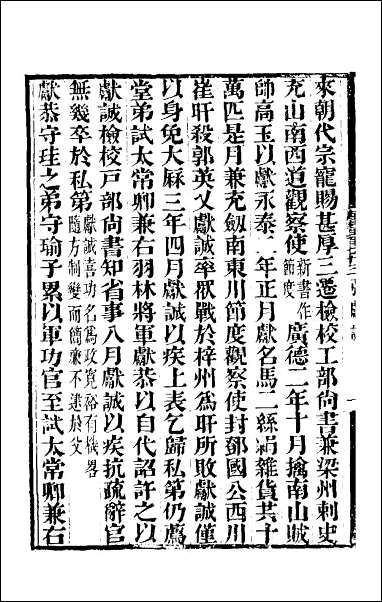 來朝代宗寵賜甚厚三遷檢校工部尚書兼梁州刺史
充山南西道觀察使新書作節度廣德二年十月擒南山賊
帥高玉以獻永泰二年正月獻名馬二絲絹雜貨共十
萬匹是月兼充劔南東川節度觀察使封鄧國公西川
崔旰殺郭英乂獻誠率眾戰於梓州爲旰所敗獻誠僅
以身免大厤三年四月獻誠以疾上表乞歸私第仍薦
堂弟試太常卿兼右羽林將軍獻恭以自代詔許之以
獻誠檢校戶部尚書知省事八月獻誠以疾抗疏辭官
無幾卒於私第獻誠喜功名爲政寬裕有機略隨方制變而簡廉不逮於父
獻恭守珪之弟守瑜子累以軍功官至試太常卿兼右